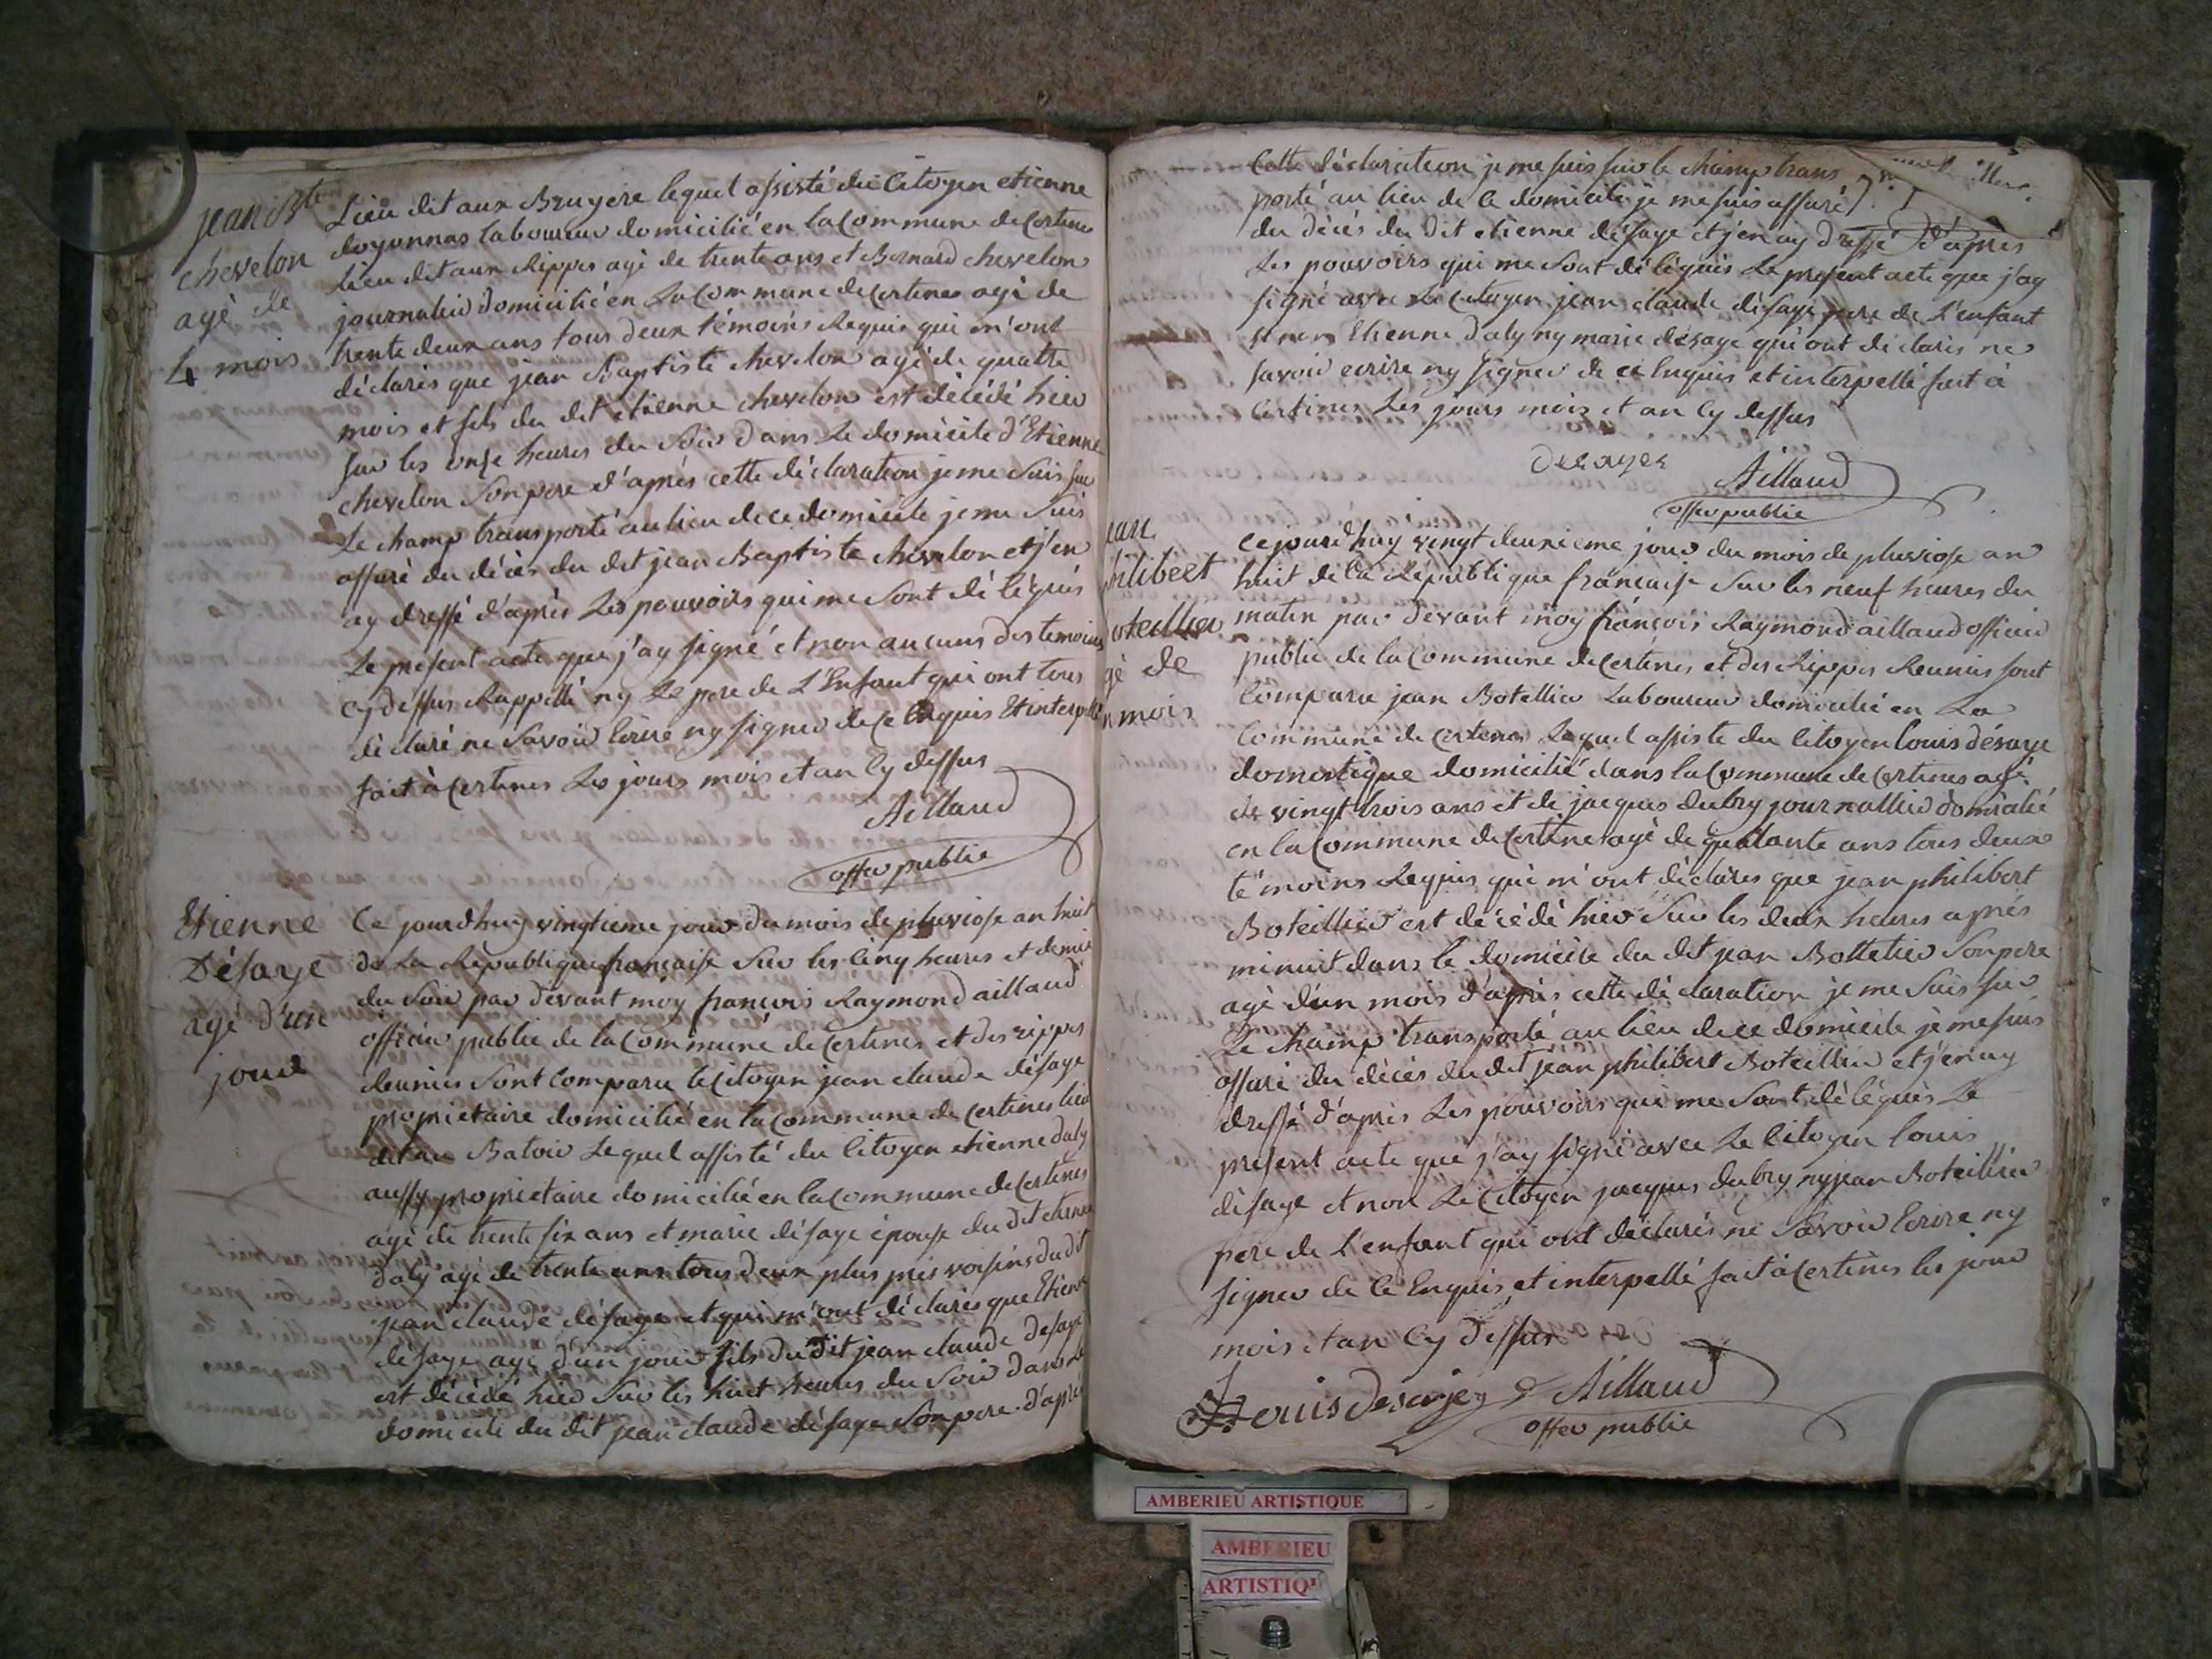 jean Bte
chevelon
agé de
4 mois
Lieu dit aux Bruyere lequel assisté du Citoyen etienne
doyonnas laboureur domicilié en la Commune de Certines
lieu dit aux Rippes agé de trente ans et Bernard chevelon
journalier domicilié en La Commune de Certines agé de
trente deux ans tous deux témoins Requis qui m'ont
déclarés que jean Baptiste chevelon agé de quatre
mois et fils du dit etienne chevelon est décédé hier
sur les onze heures du Soir dans Le domicile d'Etienne
chevelon Son pere d'aprés cette déclaration je me Suis sur
Le champ transporté au lieu de ce domicile je me Suis
assuré du décès du dit jean Baptiste chevelon et j'en
ay dressé d'aprés Les pouvoirs qui me Sont délégués
Le present acte que j'ay signé et non aucuns des temoins
cy dessus Rappellé ny Le pere de L'Enfant qui ont tous
déclaré ne Savoir Ecrire ny signer de ce Enquis Et interpellé
fait à Certines Les jours mois et an Cy dessus
Aillaud
offer public
Etienne
Désaye
agé d'un
jour
Ce jourdhuy vingtieme jour du mois de pluviose an huit
de La Republique française Sur les Cinq heures et demie
du Soir par devant moy françois Raymond aillaud
officier public de la Commune de Certines et des rippes
Reunies Sont Comparu le Citoyen jean claude désaye
proprietaire domicilié en la Commune de Certines lieu
dit au Batoir Lequel assisté du Citoyen etienne daly
aussy proprietaire domicilié en la Commune de Certines
agé de trente six ans et marie désaye épouse du dit etienne
daly agé de trente ans tous deux plus près voisins du dit
jean claude désaye et qui m'ont déclarés que Etienne
désaye agé d'un jour fils du dit jean claude desaye
est décédé hier Sur les huit heures du Soir dans le
domicile du dit jean claude désaye Son pere d'aprés
Cette déclaration je me suis sur le champ trans
porté au lieu de ce domicile je me suis assuré
du décés du dit etienne désaye et j'en ay dressé d'aprés
Les pouvoirs qui me Sont délégués Le present acte que j'ay
signé avec Le Citoyen jean claude désaye pere de L'enfant
et non Etienne daly ny marie désaye qui ont déclarés ne
savoir ecrire ny signer de ce Enquis et interpellé fait à
Certines Les jours mois et an Cy dessus
desayes Aillaud
offer public
ean
hilibert
oteillier
gé de
n mois
Cejourdhuy vingt deuxieme jour du mois de pluviose an
huit de la Republique française Sur les neuf heures du
matin par devant moy françois Raymond aillaud officier
public de la Commune de Certines et des Rippes Reunies sont
Comparu jean Botellier Laboureur domicilié en La
Commune de Certines Lequel assisté du Citoyen louis désaye
domestique domicilié dans la Commune de Certines agé
de vingt trois ans et de jacques dubry journallier domicilié
en la Commune de Certines agé de quarante ans tous deux
témoins Requis qui m'ont déclarés que jean philibert
Boteillier est décédé hier Sur les deux heures aprés
minuit dans le domicile du dit jean Bottelier Son pere
agé d'un mois d'aprés cette déclaration je me Suis sur
Le champ transporté au lieu de ce domicile je me suis
assuré du décés du dit jean philibert Boteillier et j'en ay
dressé d'aprés Les pouvoirs qui me Sont délégués Le
present acte que j'ay signé avec Le Citoyen louis
désaye et non Le Citoyen jacques dubry ny jean Boteillier
pere de L'enfant qui ont déclarés ne Savoir Ecrire ny
signer de Ce Enquis et interpellé fait à Certines les jour
mois et an Cy dessus
Louis desayes Aillaud
offer public
AMBERIEU ARTISTIQUE
AMBERIEU
ARTISTIQU